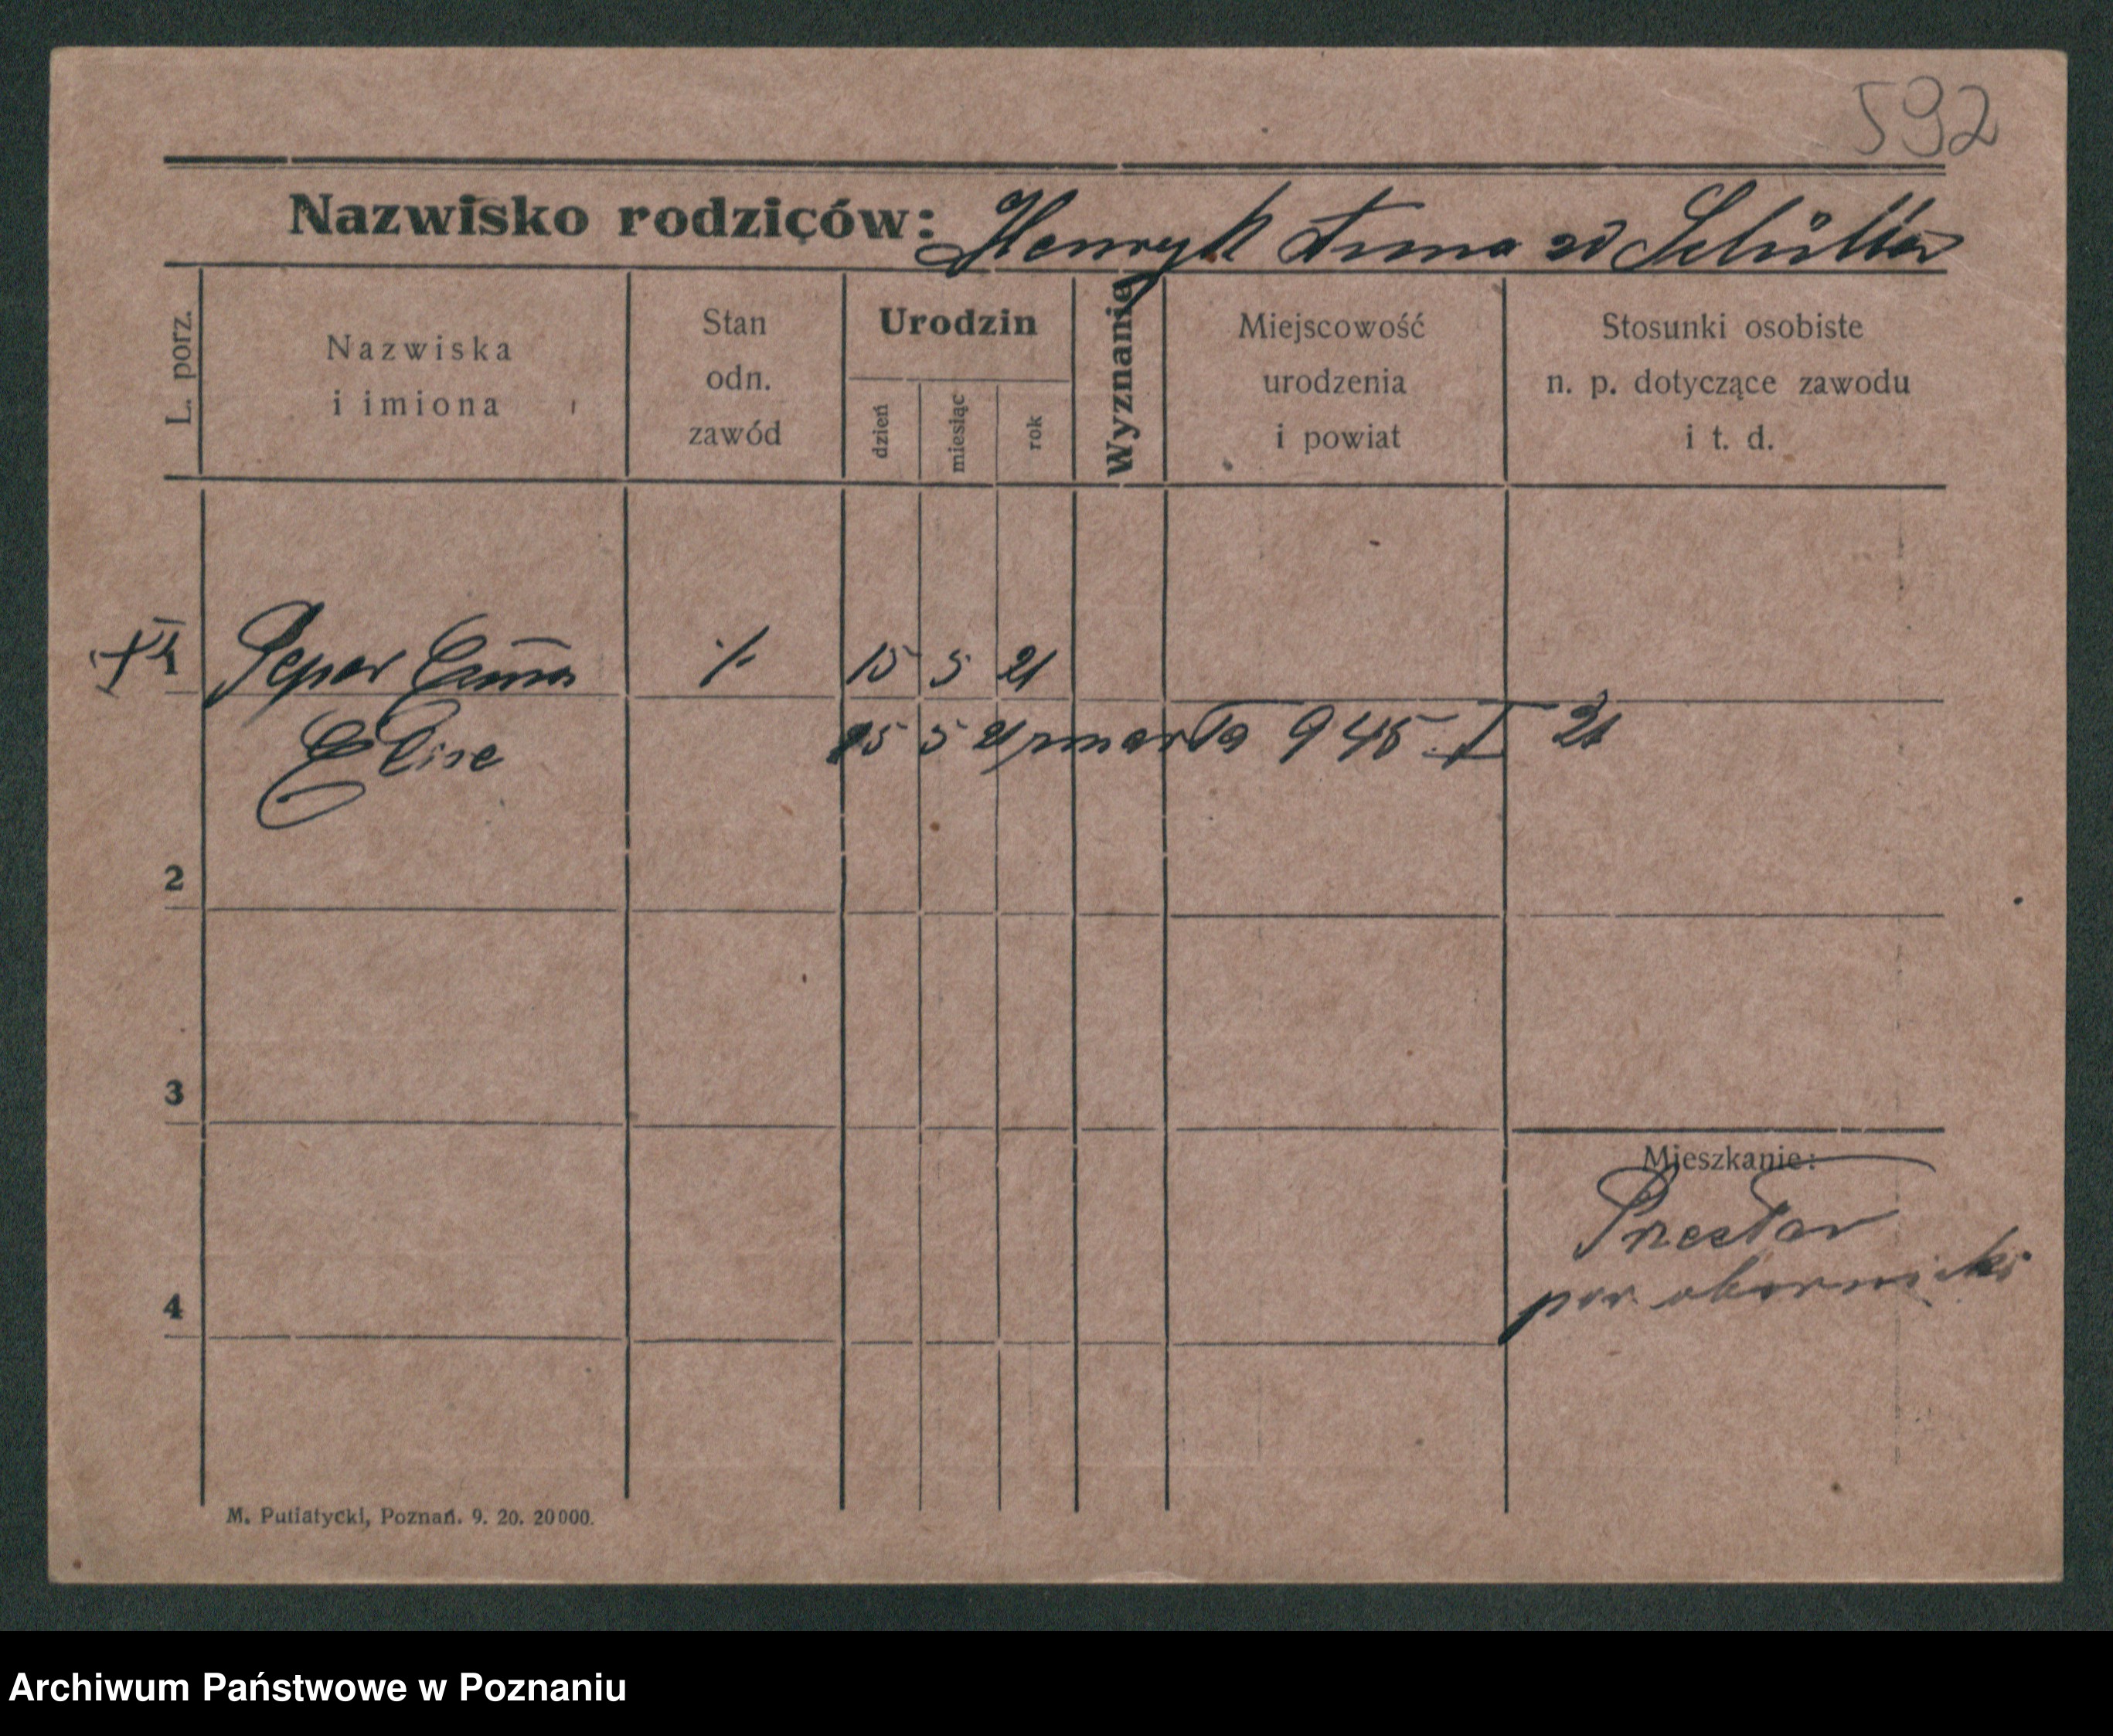 592
Nazwisko rodziców: Henryk Anna zd Schüller
L. porz.
Nazwiska
i imiona
Stan
odn.
zawód
Urodzin
dzień
miesiąc
rok
Wyznanie
Miejscowość
urodzenia
i powiat
Stosunki osobiste
n. p. dotyczące zawodu
i t. d.
1 Peper Emma ./. 15 5 21
Elise 25 5 21 zmarła 945 I 21
2
3
4
Mieszkanie:
pow obornicki
M. Putiatycki, Poznań. 9. 20. 20000.
Archiwum Państwowe w Poznaniu